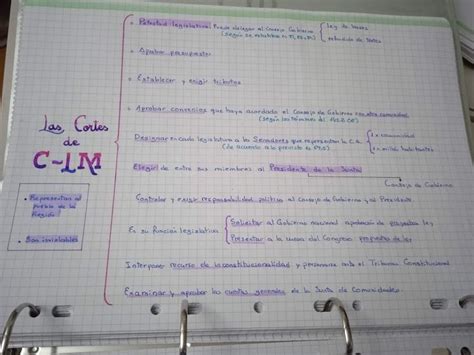 Potestad legislativa Puede delegar al Consejo Gobierno
(según se establece en
Ley de bases
refundido de textos
Aprobar presupuestos
Establecer y exigir tributos
Aprobar convenios que haya acordado el Consejo de Gobierno con otra comunidad
(según los términos del
Las Cortes
de
C-LM
Designar en cada legislatura a los Senadores que representan la C.A.
(de acuerdo a lo previsto en
1 x comunidad
habitantes
Elegir de entre sus miembros al Presidente de la Junta
Consejo de Gobierno
Representan al
pueblo de la
Región
Son inviolables
Controlar y exigir responsabilidad política al Consejo de Gobierno y su Presidente
En su función legislativa
Solicitar al Gobierno nacional aprobación de proyectos ley
Presentar a la mesa del Congreso propuestas de ley
Interponer recurso de inconstitucionalidad y personarse ante el Tribunal Constitucional
Examinar y aprobar las cuentas generales de la Junta de Comunidades